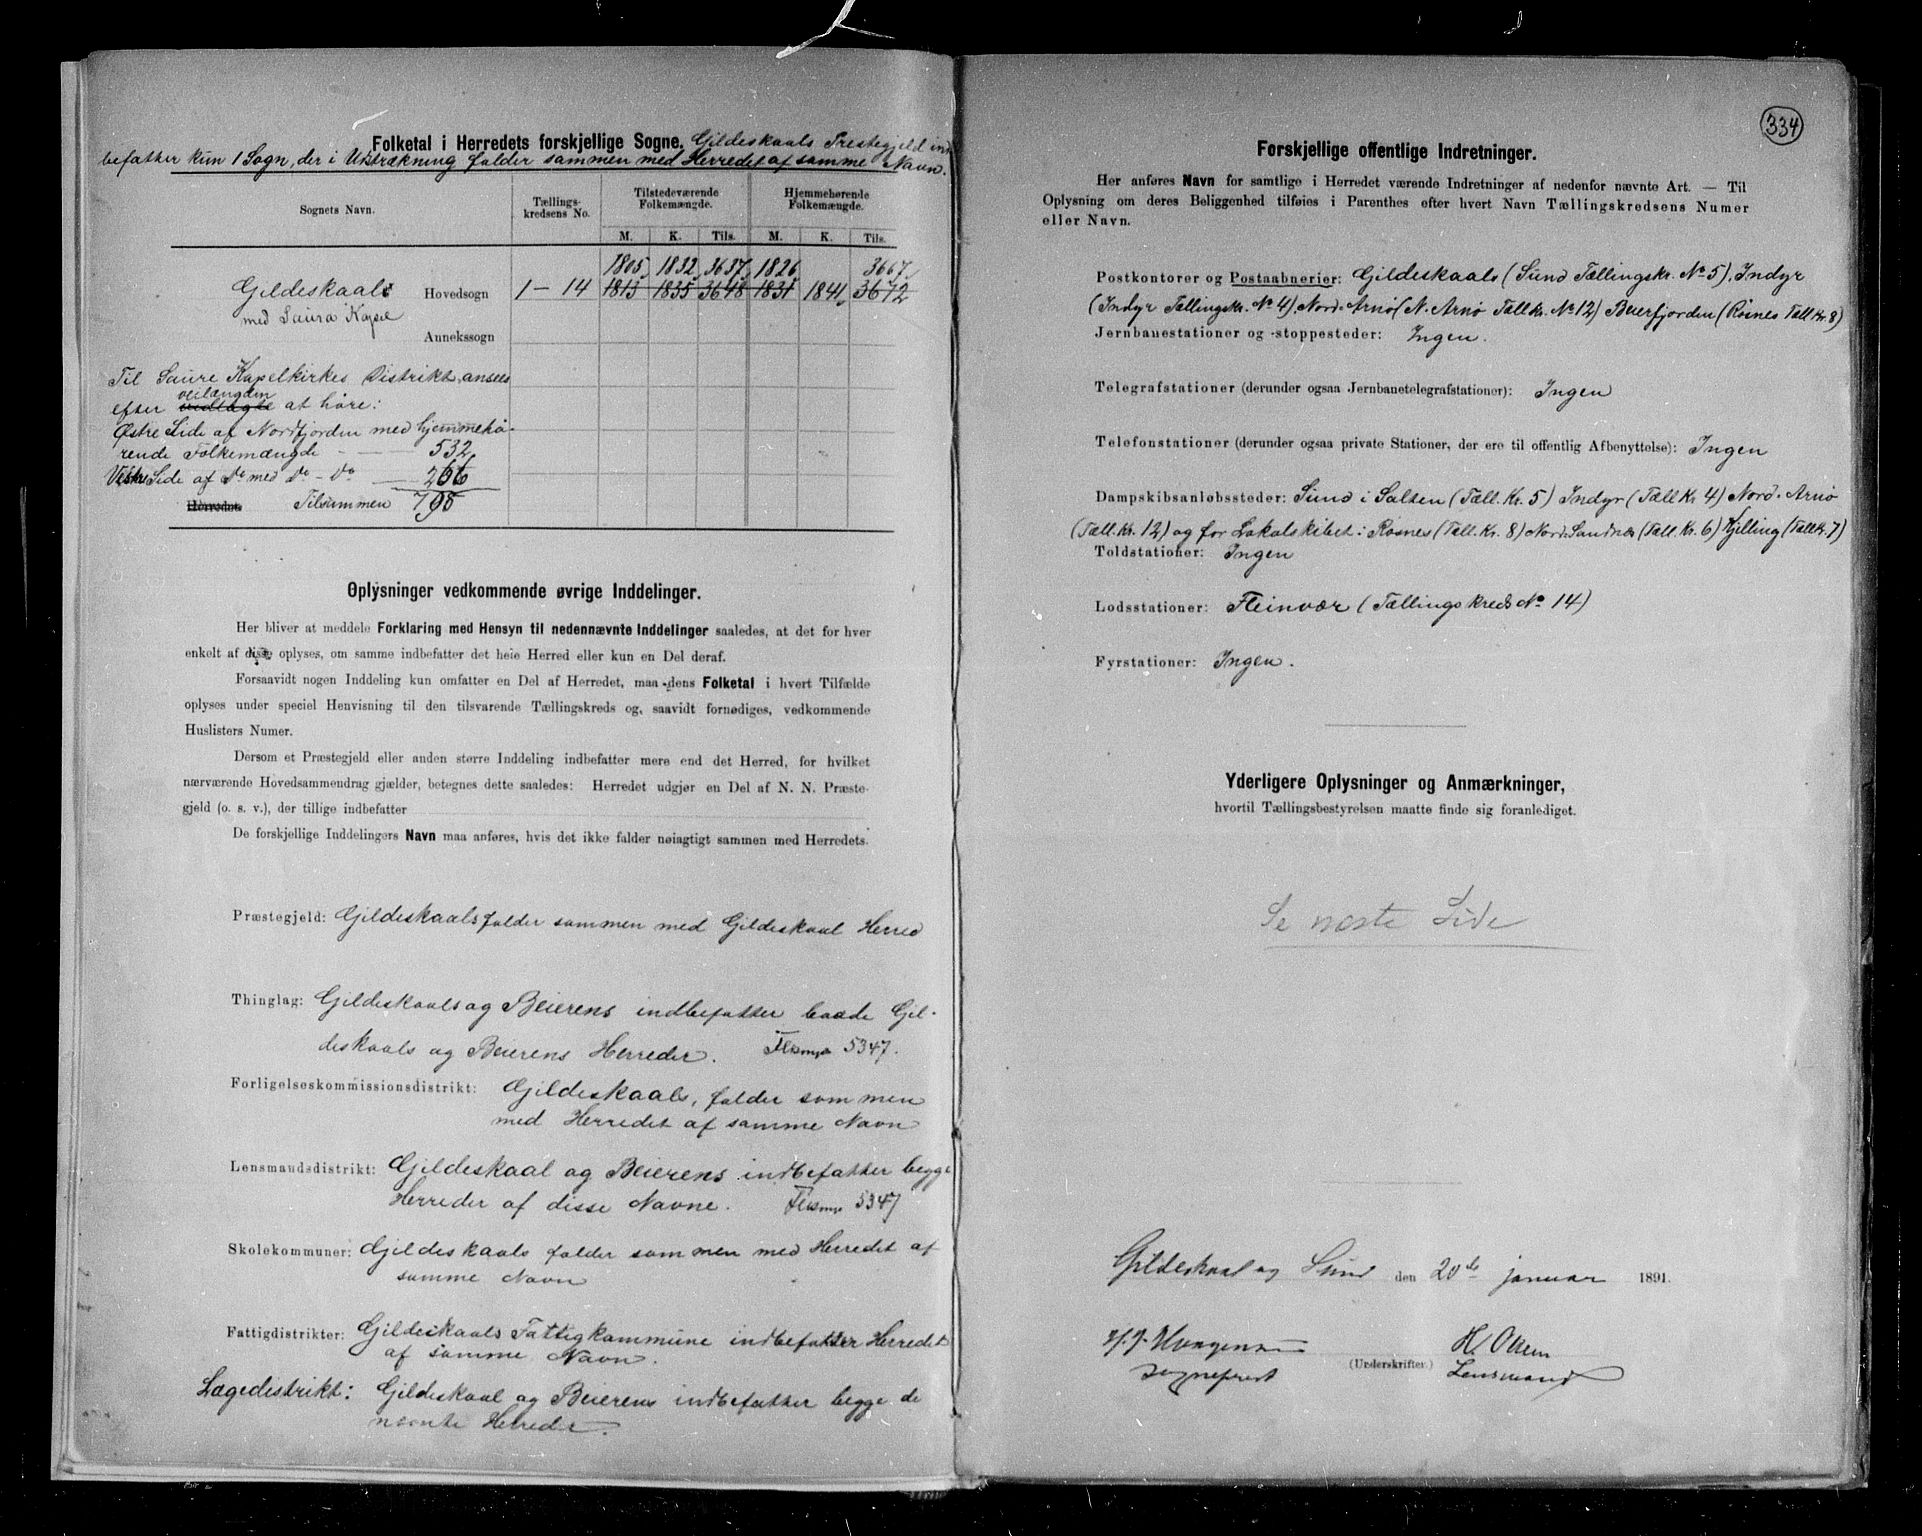 Folketal i Herredets forskjellige Sogne. Gildeskaals Prestegjeld ind
befatter kun 1 Sogn, der i Udstrækning falder sammen med Herredet af samme Navn.
Sognets Navn.
Tællings-
kredsens No.
Tilstedeværende
Folkemængde.
Hjemmehørende
Folkemængde.
M. K. Tils. M. K. Tils.
1805, 1832, 3637, 1826, 3667,
Gildeskaals Hovedsogn 1 - 14 1813 1835 3648 1831 1841, 3672
med Saura Kapel
Annekssogn
Til Saure Kapelkirkes Distrikt ansees
veilængden
efter vedlagte at høre:
Østre Side af Nordfjorden med hjemmehø-
rende Folkemængde - 532
Vestre Side af Do med Do - Do 266
Herredet. Tilsummen 798
Oplysninger vedkommende øvrige Inddelinger.
Her bliver at meddele Forklaring med Hensyn til nedennævnte Inddelinger saaledes, at det for hver
enkelt af disse oplyses, om samme indbefatter det hele Herred eller kun en Del deraf.
Forsaavidt nogen Inddeling kun omfatter en Del af Herredet, maa dens Folketal i hvert Tilfælde
oplyses under speciel Henvisning til den tilsvarende Tællingskreds og, saavidt fornødiges, vedkommende
Huslisters Numer.
Dersom et Præstegjeld eller anden større Inddeling indbefatter mere end det Herred, for hvilket
nærværende Hovedsammendrag gjælder, betegnes dette saaledes: Herredet udgjør en Del af N. N. Præste-
gjeld (o. s. v.), der tillige indbefatter
De forskjellige Inddelingers Navn maa anføres, hvis det ikke falder nøiagtigt sammen med Herredets.
Præstegjeld: Gildeskaals falder sammen med Gildeskaal Herred
Thinglag: Gildeskaals og Beierens indbefatter baade Gil-
deskaals og Beierens Herreder. Flkmgd 5347.
Forligelseskommissionsdistrikt: Gildeskaals, falder sammen
med Herredet af samme Navn
Lensmandsdistrikt: Gildeskaal og Beierens indbefatter begge
Herreder af disse Navne. Flkmgd 5347
Skolekommuner: Gildeskaals falder sammen med Herredet af
samme Navn
Fattigdistrikter: Gildeskaals Fattigkommune indbefatter Herredet
af samme Navn.
Lægedistrikt: Gildeskaal og Beierens indbefatter begge de
nævnte Herreder.
334
Forskjellige offentlige Indretninger.
Her anføres Navn for samtlige i Herredet værende Indretninger af nedenfor nævnte Art. — Til
Oplysning om deres Beliggenhed tilføies i Parenthes efter hvert Navn Tællingskredsens Numer
eller Navn.
Postkontorer og Postaabnerier: Gildeskaals (Sund Tællingskr. No 5), Indyr
(Indyr Tællingskr. No 4), Nord-Arnø (N. Arnø Tællkr. No 12) Beierfjorden (Rosnes Tællkr. 8)
Jernbanestationer og -stoppesteder: Ingen.
Telegrafstationer (derunder ogsaa Jernbanetelegrafstationer): Ingen
Telefonstationer (derunder ogsaa private Stationer, der ere til offentlig Afbenyttelse): Ingen
Dampskibsanløbssteder: Sund i Salten (Tæll. Kr. 5) Indyr (Tæll Kr 4) Nord-Arnø
(Tæll. Kr. 12) og for Lokalskibet: Rosnes (Tæll. Kr. 8) Nord-Sandnes (Tæll. Kr. 6) Kjelling (Tællkr. 7)
Toldstationer: Ingen
Lodsstationer: Fleinvær (Tællingskreds No 14)
Fyrstationer: Ingen.
Yderligere Oplysninger og Anmærkninger,
hvortil Tællingsbestyrelsen maatte finde sig foranlediget.
Se næste Side
Gildeskaal og Sund den 20de januar 1891.
H. Olsen
(Underskrifter.)
sogneprest Lensmand